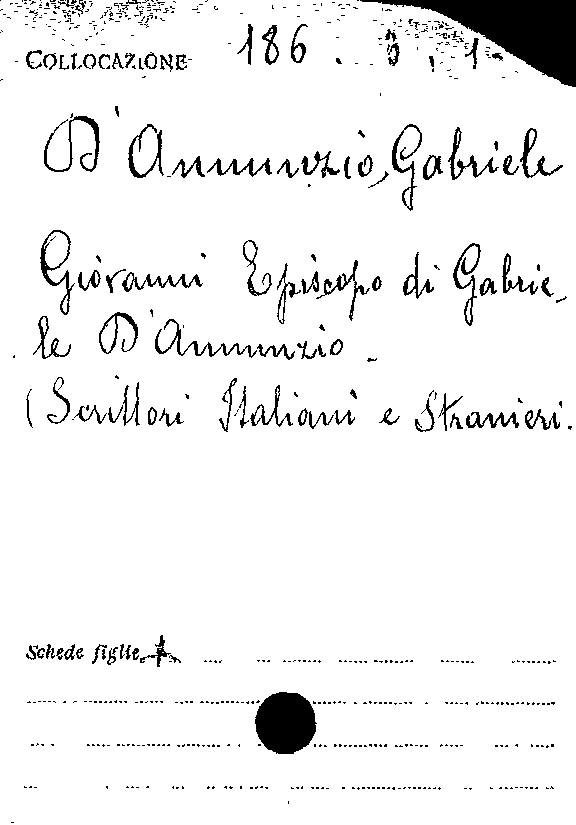 COLLOCAZIONE 186. 6. 1-
D'Annunzio, Gabriele
Giovanni Episcopo di Gabrie-
le D'Annunzio.
(Scrittori Italiani e Stranieri.
Schede figlie